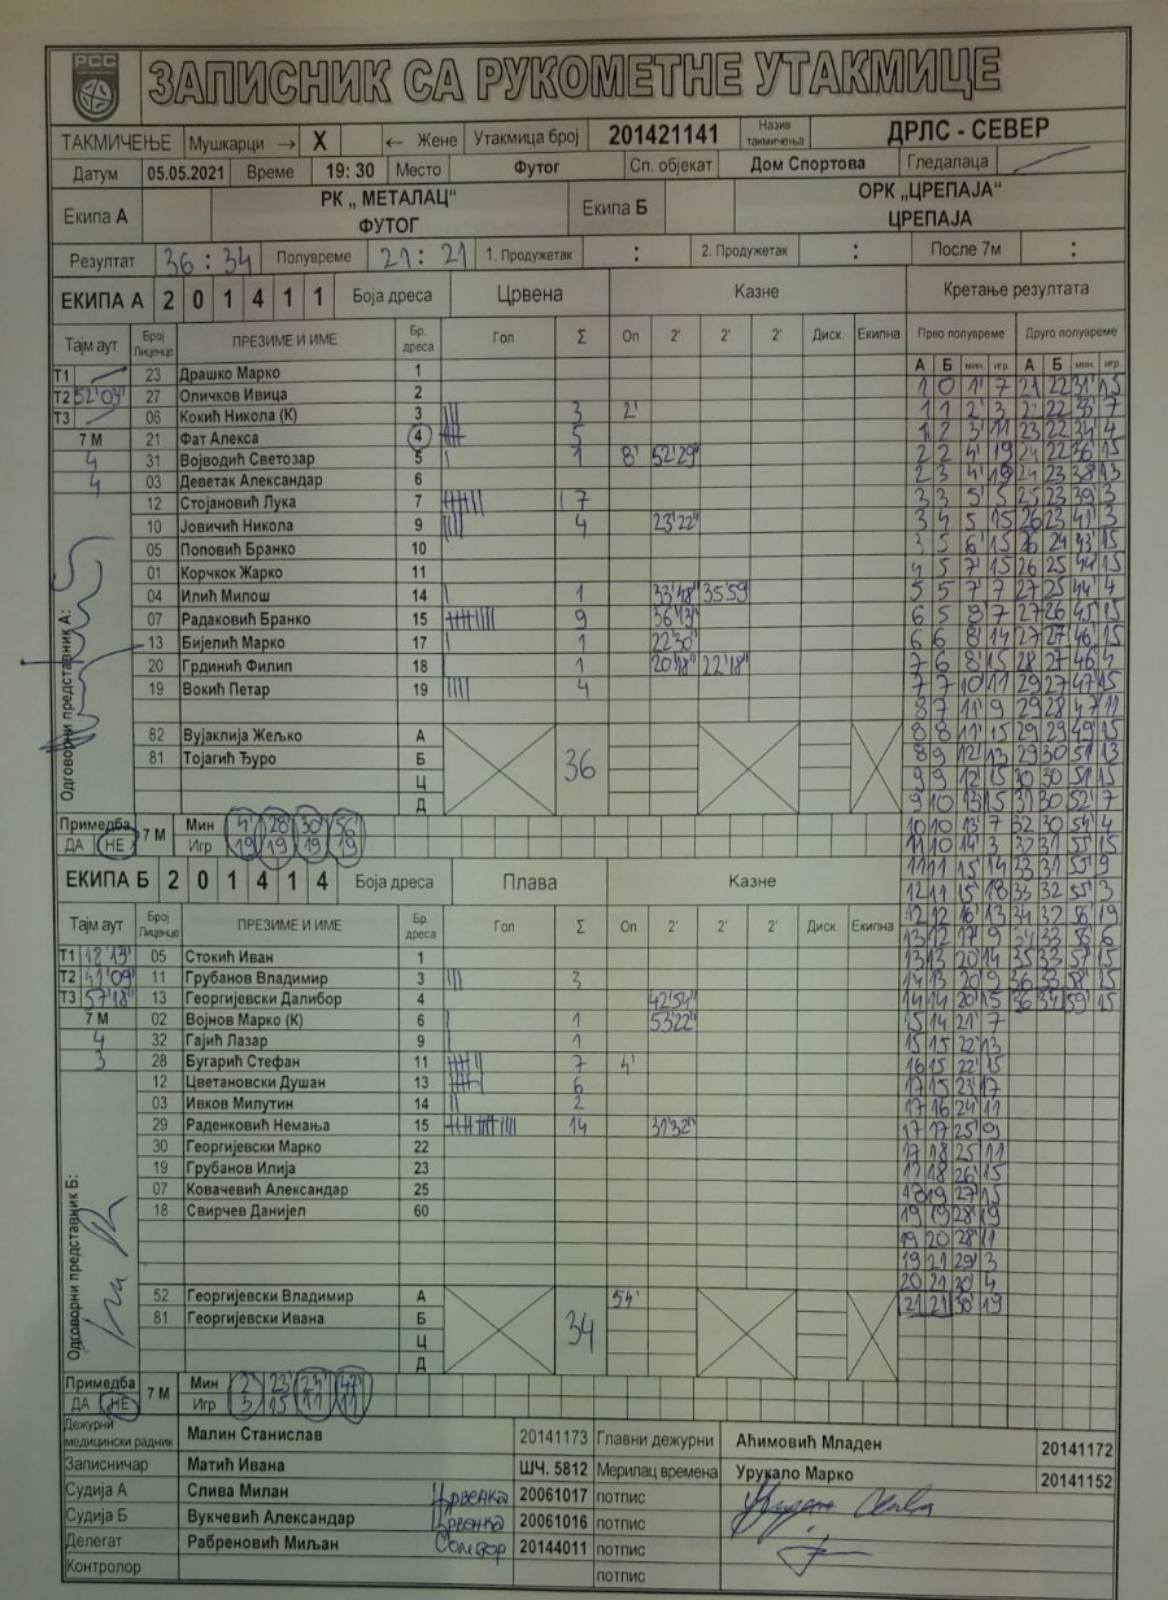 РСС
ЗАПИСНИК СА РУКОМЕТНЕ УТАКМИЦЕ
ТАКМИЧЕЊЕ Мушкарци → X ← Жене Утакмица број 201421141 Назив такмичења ДРЛС - СЕВЕР
Датум 05.05.2021 Време 19: 30 Место Футог Сп. објекат Дом Спортова Гледалаца
Екипа А РК „ МЕТАЛАЦ“ ФУТОГ Екипа Б ОРК „ЦРЕПАЈА“ ЦРЕПАЈА
Резултат 36 : 34 Полувреме 21 : 21 1. Продужетак : 2. Продужетак : После 7м :
ЕКИПА А 2 0 1 4 1 1 Боја дреса Црвена Казне Кретање резултата
Тајм аут Број Лиценце ПРЕЗИМЕ И ИМЕ Бр. дреса Гол Σ Оп 2' 2' 2' Диск. Екипна Прво полувреме Друго полувреме
А Б мин. игр. А Б мин. игр.
Т1 23 Драшко Марко 1
Т2 52'03" 27 Оличков Ивица 2
Т3 06 Кокић Никола (К) 3 3 2'
7 М 21 Фат Алекса 4 5
4 31 Војводић Светозар 5 1 8' 52'29"
4 03 Деветак Александар 6
12 Стојановић Лука 7 7
10 Јовичић Никола 9 4 23'22"
05 Поповић Бранко 10
01 Корчкок Жарко 11
04 Илић Милош 14 1 33'48" 35'59
07 Радаковић Бранко 15 9 36'13"
13 Бијелић Марко 17 1 22'30"
20 Грдинић Филип 18 1 20'18" 22'18"
19 Вокић Петар 19 4
82 Вујаклија Жељко А
81 Тојагић Ђуро Б 36
Ц
Д
Одговорни представник А:
Примедба ДА НЕ 7 М Мин 4' 28' 30' 56'
Игр 19 19 19 19
ЕКИПА Б 2 0 1 4 1 4 Боја дреса Плава Казне
Тајм аут Број Лиценце ПРЕЗИМЕ И ИМЕ Бр. дреса Гол Σ Оп 2' 2' 2' Диск. Екипна
Т1 18'13" 05 Стокић Иван 1
Т2 41'09" 11 Грубанов Владимир 3 3
Т3 57'18" 13 Георгијевски Далибор 4 42'54"
7 М 02 Војнов Марко (К) 6 1 53'22"
4 32 Гајић Лазар 9 1
3 28 Бугарић Стефан 11 7 4'
12 Цветановски Душан 13 6
03 Ивков Милутин 14 2
29 Раденковић Немања 15 14 31'32"
30 Георгијевски Марко 22
19 Грубанов Илија 23
07 Ковачевић Александар 25
18 Свирчев Данијел 60
52 Георгијевски Владимир А 54'
81 Георгијевски Ивана Б 34
Ц
Д
Одговорни представник Б:
Примедба ДА НЕ 7 М Мин 2' 23' 47'
Игр 3 15 11 11
1 0 1' 7 21 22 31' 15
1 1 2' 3 22 22 33' 7
1 2 3' 11 23 22 34' 4
2 2 4' 19 24 22 36' 15
2 3 4' 24 23 38' 13
3 3 5' 5 25 23 39' 3
3 4 5 15 26 23 41' 3
3 5 6' 15 26 24 43' 15
4 5 7' 15 26 25 44' 15
5 5 7' 7 27 25 44' 4
6 5 8' 7 27 26 45' 15
6 6 8' 14 27 27 46' 15
7 6 8' 15 28 27 46 4
7 7 10' 11 29 27 47' 15
8 7 11' 9 29 28 47' 11
8 8 11' 15 29 29 49' 15
8 9 12' 13 29 30 51' 13
9 9 12' 15 30 30 51' 15
9 10 13' 15 31 30 52' 7
10 10 13' 7 32 30 54' 4
11 10 14' 3 32 31 55' 15
11 11 15' 14 33 31 55' 9
12 11 15' 18 33 32 55' 3
12 12 16' 13 34 32 56' 19
13 12 17' 9 34 33 56' 6
13 13 20' 14 35 33 57' 15
14 13 20 9 36 33 58' 15
14 14 20' 15 36 34 59' 15
15 14 21' 7
15 15 22' 13
16 15 22' 15
17 15 23' 17
17 16 24' 11
17 17 25' 9
17 18 25' 11
17 18 26' 15
18 19 27' 15
19 19 28' 19
19 20 28' 11
19 21 29' 3
20 21 30' 4
21 21 30' 19
Дежурни медицински радник Малин Станислав 20141173 Главни дежурни Аћимовић Младен 20141172
Записничар Матић Ивана ШЧ. 5812 Мерилац времена Урукало Марко 20141152
Судија А Слива Милан Црвенка 20061017 потпис
Судија Б Вукчевић Александар Црвенка 20061016 потпис
Делегат Рабреновић Миљан Сомбор 20144011 потпис
Контролор потпис